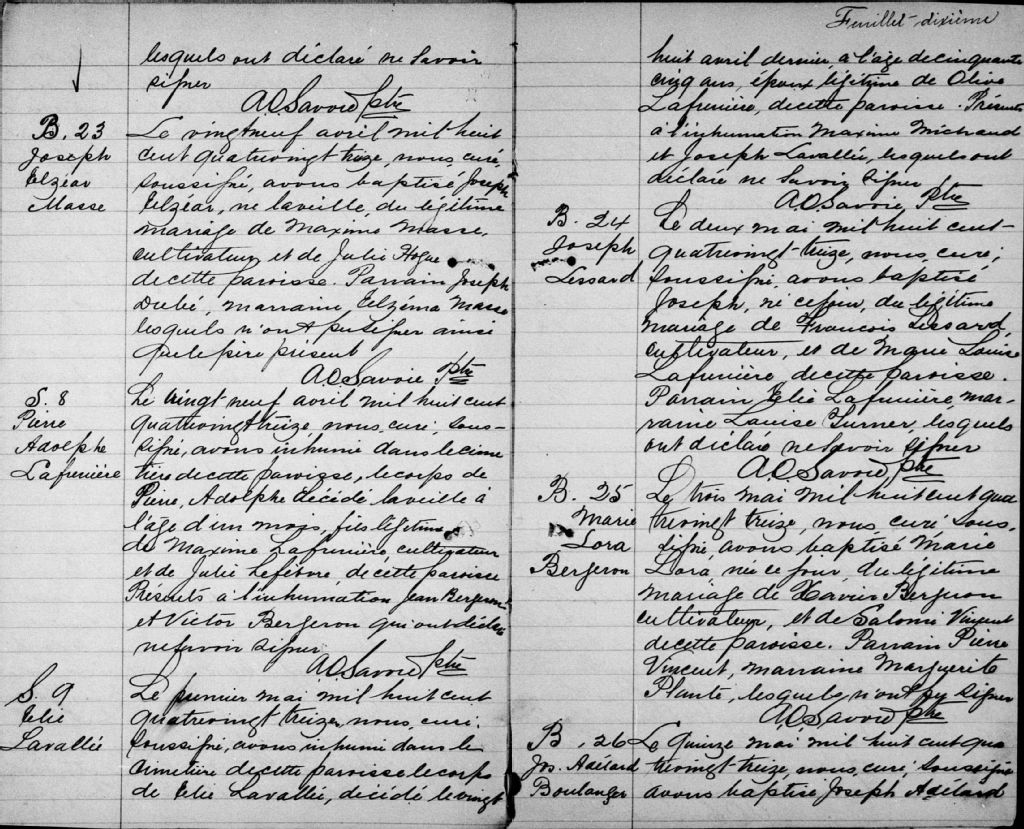 lesquels ont déclaré ne savoir
signer
A.O. Savoie Ptre
B. 23
Joseph
Elzéar
Masse
Le vingt neuf avril mil huit
cent quatrevingt treize, nous, curé
soussigné, avons baptisé Joseph
Elzéar, né la veille, du légitime
mariage de Maxime Masse,
cultivateur et de Julie Hogue
de cette paroisse. Parrain Joseph
Dubé, marraine, Elzéma Masse
lesquels n'ont pu signer ainsi
que le père présent
A.O. Savoie, Ptre
S. 8
Pierre
Adolphe
Lafrenière
Le vingt neuf avril mil huit cent
quatrevingt treize nous, curé, sous-
signé, avons inhumé dans le cime
tière de cette paroisse, le corps de
Pierre, Adolphe décédé la veille à
l'âge d'un mois, fils légitime
de Maxime Lafrenière, cultivateur
et de Julie Lefebvre, de cette paroisse
Présents à l'inhumation Jean Bergeron
et Victor Bergeron qui ont déclaré
ne savoir signer
A.O. Savoie Ptre
S. 9
Elie
Lavallée
Le premier mai mil huit cent
quatrevingt treize, nous, curé,
soussigné, avons inhumé dans le
cimetière de cette paroisse le corps
de Elie Lavallée, décédé le vingt
Feuillet dixième
huit avril dernier, à l'âge de cinquante
cinq ans, époux légitime de Olive
Lafrenière, de cette paroisse. Présents
à l'inhumation Maxime Michaud
et Joseph Lavallée, lesquels ont
déclaré ne savoir signer
A.O. Savoie Ptre
B. 24
Joseph
Lessard
Le deux mai mil huit cent
quatrevingt-treize, nous, curé,
soussigné, avons baptisé
Joseph, né ce jour, du légitime
mariage de François Lessard,
cultivateur, et de Marie Louise
Lafrenière, de cette paroisse.
Parrain Elie Lafrenière, mar-
raine Louise Turner, lesquels
ont déclaré ne savoir signer
A.O. Savoie Ptre
B. 25
Marie
Lora
Bergeron
Le trois mai mil huit cent qua
trevingt treize, nous, curé sous-
signé, avons baptisé Marie
Lora, née ce jour, du légitime
mariage de Xavier Bergeron
cultivateur, et de Salomé Vincent
de cette paroisse. Parrain Pierre
Vincent, marraine Marguerite
Plante, lesquels n'ont pu signer
A.O. Savoie Ptre
B. 26
Jos. Adélard
Boulanger
Le quinze mai mil huit cent qua
trevingt treize, nous, curé, soussigné
avons baptisé Joseph Adélard